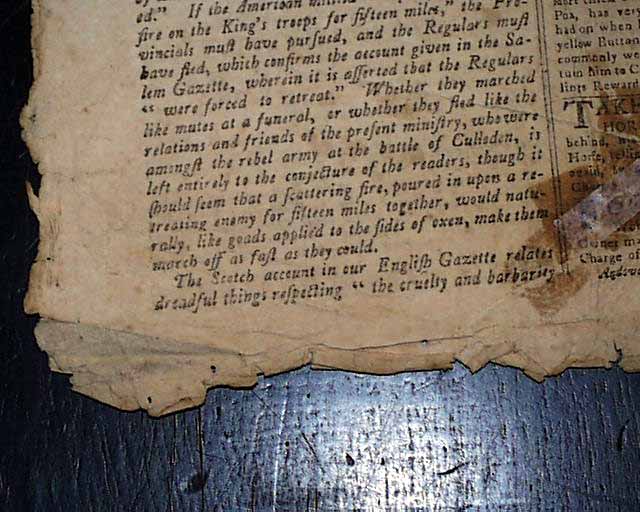 ed." If the American
fire on the King's troops for fifteen miles," the Pro-
vincials muſt have purſued, and the Regulars muſt
have fled, which confirms the account given in the Sa-
lem Gazette, wherein it is aſſerted that the Regulars
" were forced to retreat." Whether they marched
like mutes at a funeral, or whether they fled like the
relations and friends of the preſent miniſtry, who were
amongſt the rebel army at the battle of Culloden, is
left entirely to the conjecture of the readers, though it
ſhould ſeem that a ſcattering fire, poured in upon a re-
treating enemy for fifteen miles together, would natu-
rally, like goads applied to the ſides of oxen, make them
march off as faſt as they could.
The Scotch account in our Engliſh Gazette relates
dreadful things reſpecting " the cruelty and barbarity
Pox, has very
had on when
yellow Button
commonly we
turn him to C
lings Reward
TAKE
HOR
behind, his
Horſe,
again,
Char
Owner
Charge of